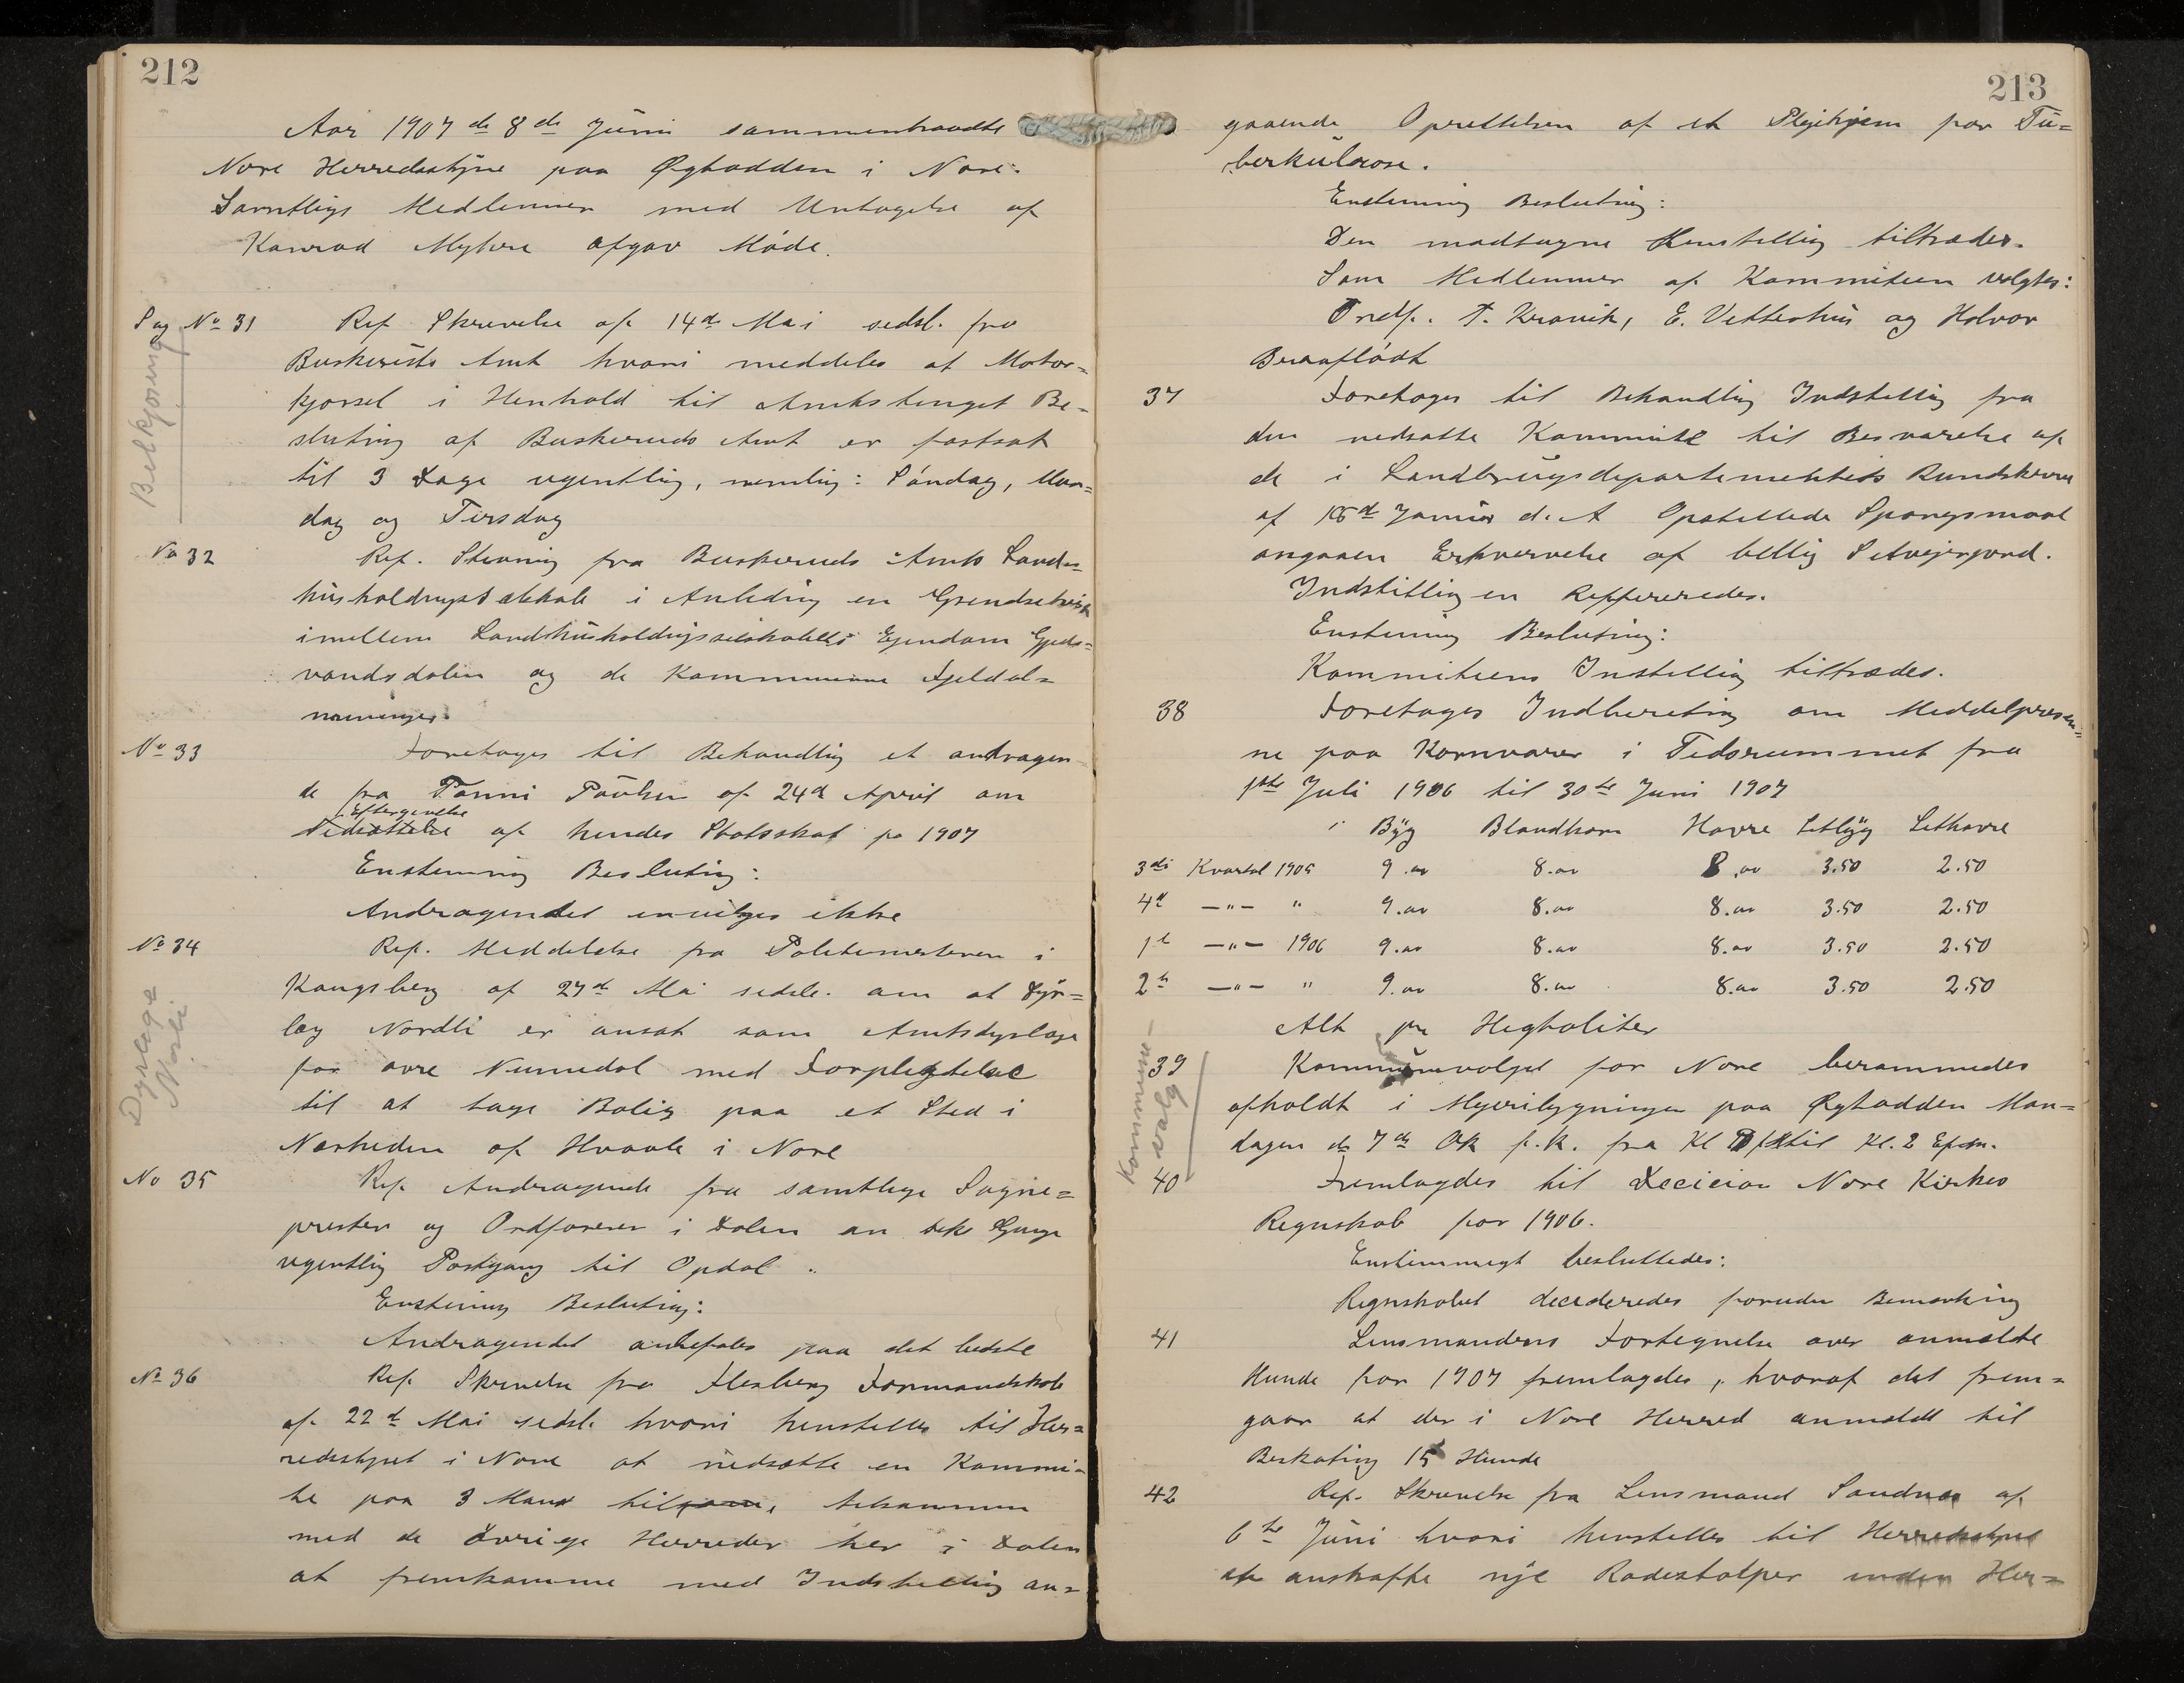 212
Aar 1907 de 8de Juni sammentraadte
Nore Herredsstyre paa Øygtadden i Nore.
Samtlige Medlemmer med Untagelse af
Konrad Myhre afgav Møde.
Sag No 31
Ref. Skrivelse af 14de Mai sidstl. fra
Buskeruds Amt hvori meddeles at Motor=
kjørsel i Henhold til Amtstinget Be=
slutning af Buskeruds Amt er fastsat
til 3 Dage ugentlig, nemlig: Søndag, Man=
dag og Tirsdag
Bilkjøring
No 32
Ref. Stevning fra Buskeruds Amts Lands=
husholdnings Selskab i Anledning en Grendsetvist
imellem Landhusholdingsselskabets Ejendom Gjeds=
vandsdalen og de Kommunene Fjeldal=
menninger.
No 33
Foretages til Behandling et andragen=
de fra Tonni Paulsen af 24de April om
Eftergivelse
Nedsættelse af hendes Statsskat for 1907
Enstemmig Beslutning:
Andragendet invilges ikke
No 34
Ref. Meddelelse fra Politimesteren i
Kongsberg af 27de Mai sidstl. om at Dyr=
læg Nordli er ansat som Amtsdyrlæge
for øvre Numedal med Forpligtelse
til at tage Bolig paa et Sted i
Nærheden af Hvaale i Nore
Dyrlæge
Norli
No 35
Ref. Andragende fra samtlige Sogne=
prester og Ordførerer i Dalen om seks Gange
ugentlig Postgang til Opdal.
Enstemmig Beslutning:
Andragendet anbefales paa det bedste
No 36
Ref. Skrivelse fra Flesberg Formandskab
af 22de Mai sidstl. hvori henstilles til Her=
redsstyret i Nore at nedsætte en Kommi=
te paa 3 Mand til, sammen
med de Øvrige Herreder her i Dalen
at fremkomme med Indstilling an=
213
gaaende Oprettelsen af et Plejehjem for Tu=
berkulose.
Enstemmig Beslutning:
Den modtagne Henstilling tiltrædes.
Som Medlemmer af Kommiteen valgtes:
Ordf. T. Kravik, E. Vetterhus og Halvor
Beraaflødt
37
Foretages til Behandling Indstilling fra
den nedsatte Kommité til Besvarelse af
de i Landbrugsdepartementets Rundskrivelse
af Januar d. A. Opstillede Spørgsmaal
angaaen Erhvervelse af billig Selvejerjord.
Indstillingen Reffereredes.
Enstemmig Beslutning:
Kommiteens Instilling tiltrædes.
38
Foretages Indberetning om Middelprisen=
ne paa Kornvarer i Tidsrummet fra
1ste Juli 1906 til 30te Juni 1907
i Byg Blandkorn Havre Letbyg Lethavre
3die Kvartal 1905 9.00 8.00 8.00 3.50 2.50
4de —"— " 9.00 8.00 8.00 3.50 2.50
1ste —"— 1906 9.00 8.00 8.00 3.50 2.50
2de —"— " 9.00 8.00 8.00 3.50 2.50
Alt pr Hegtoliter
39
Kommunevalget for Nore berammedes
afholdt i Myeribygningen paa Øygtadden Man=
dagen de 7de Ok f.k. fra Kl til Kl. 2 Efm.
Kommune-
valg
40
Fremlagdes til Decicion Nore Kirkes
Regnskab for 1906.
Enstemmigt besluttedes:
Regnskabet decideredes foruden Bemærkning
41
Lensmandens Fortegnelse over anmeldte
Hunde for 1907 fremlagdes, hvoraf det frem=
gaar at der i Nore Herred anmeldt til
Beskatning 15 Hunde
42
Ref. Skrivelse fra Lensmand Sandnes af
6te Juni hvori henstilles til Herredsstyret
at anskaffe nye Rodestolper inden Her=